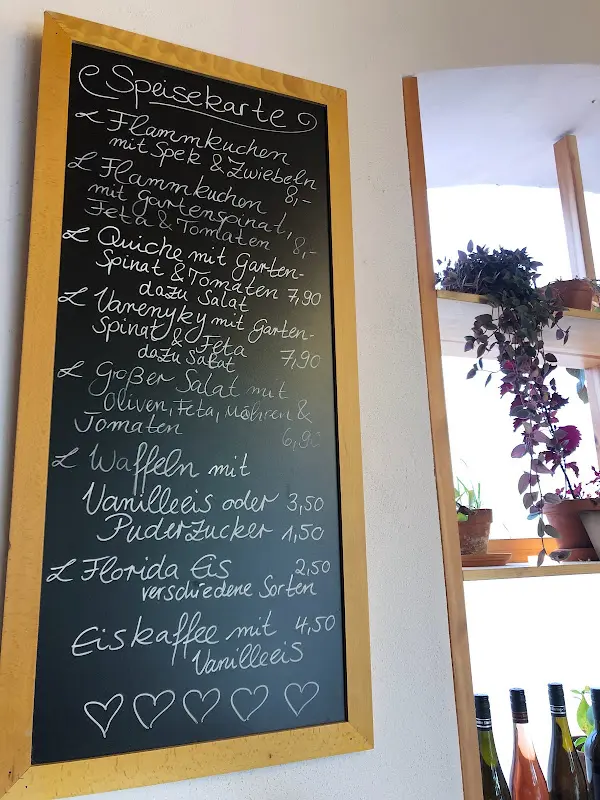 Speisekarte
Flammkuchen
mit Spek & Zwiebeln
8,-
Flammkuchen
mit Gartenspinat,
Feta & Tomaten 8,-
Quiche mit Garten-
Spinat & Tomaten 7,90
dazu Salat
Varenyky mit Garten-
Spinat & Feta
dazu Salat 7,90
Großer Salat mit
Oliven, Feta, Möhren &
Tomaten 6,90
Waffeln mit
Vanilleeis oder 3,50
Puderzucker 1,50
Florida Eis 2,50
verschiedene Sorten
Eiskaffee mit 4,50
Vanilleeis